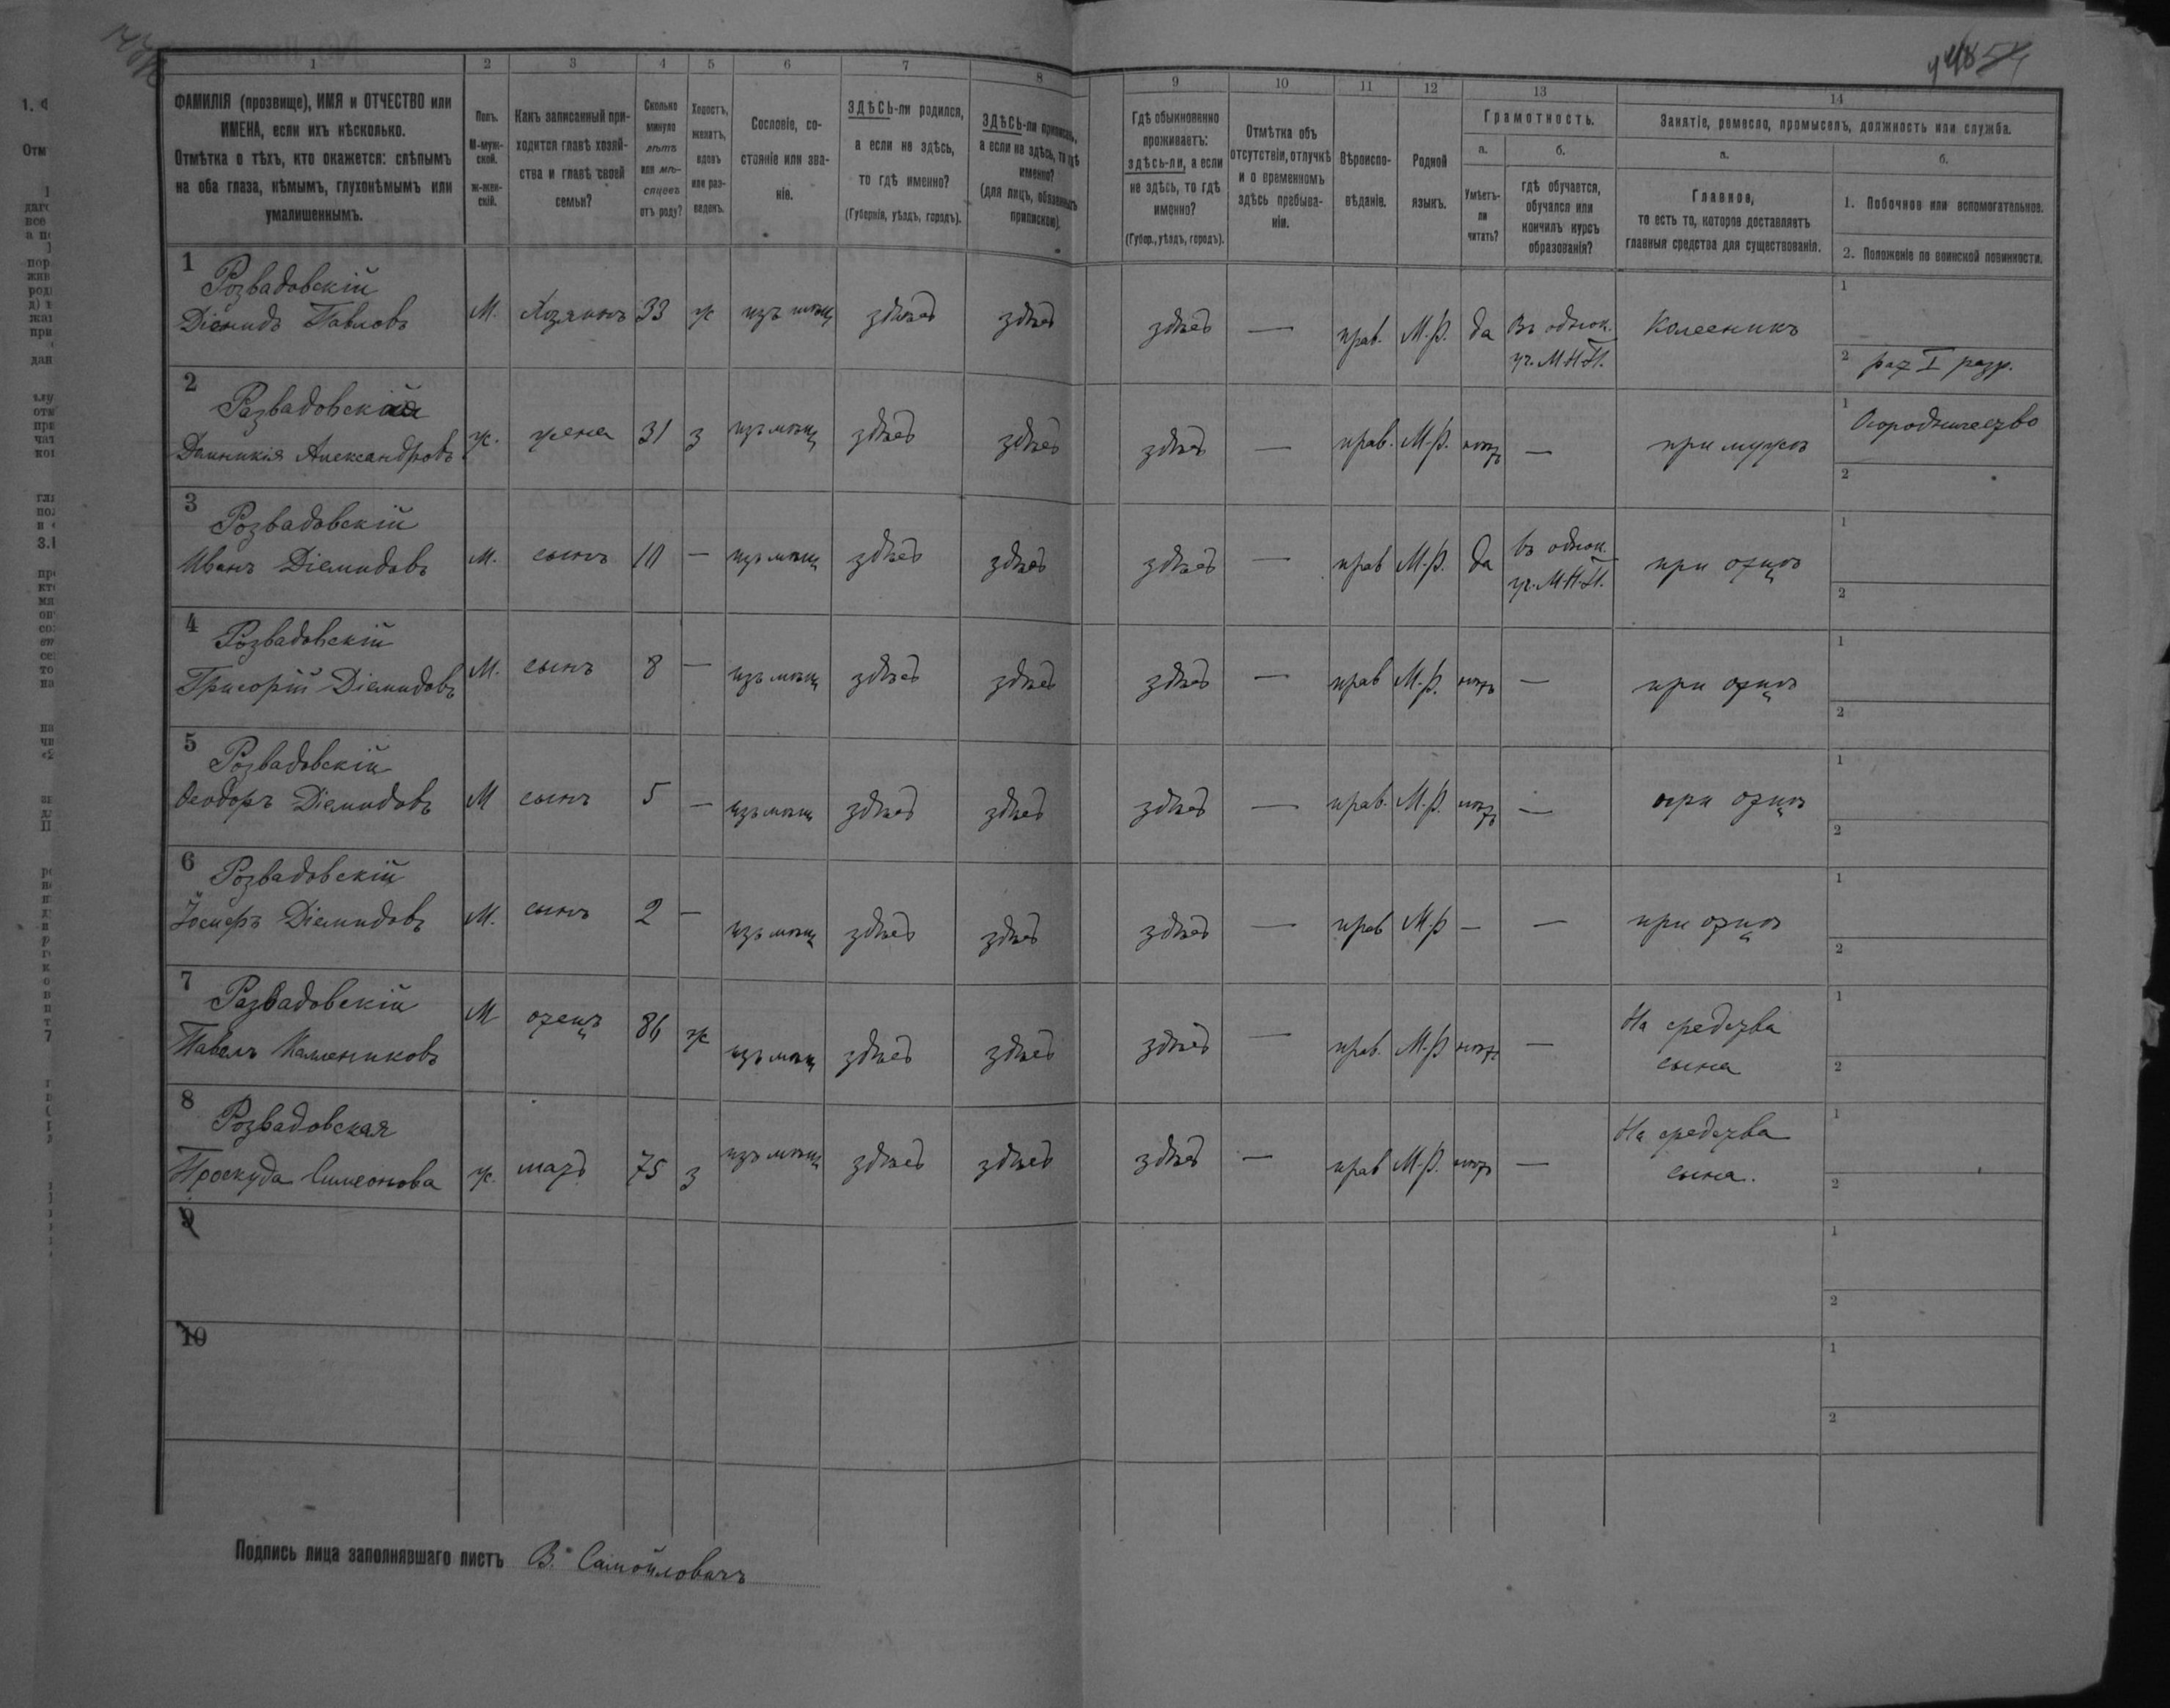 1 2 3 4 5 6 7 8 9 10 11 12 13 14
ФАМИЛІЯ (прозвище), ИМЯ и ОТЧЕСТВО или
ИМЕНА, если ихъ нѣсколько.
Отмѣтка о тѣхъ, кто окажется: слѣпымъ
на оба глаза, нѣмымъ, глухонѣмымъ или
умалишеннымъ.
Полъ.
М-муж-
ской.
ж-жен-
скій.
Какъ записанный при-
ходится главѣ хозяй-
ства и главѣ своей
семьи?
Сколько
минуло
лѣтъ
или мѣ-
сяцевъ
отъ роду?
Холостъ,
женатъ,
вдовъ
или раз-
веденъ.
Сословіе, со-
стояніе или зва-
ніе.
ЗДѢСЬ-ли родился,
а если не здѣсь,
то гдѣ именно?
(Губернія, уѣздъ, городъ).
ЗДѢСЬ-ли приписанъ,
а если не здѣсь, то гдѣ
именно?
(для лицъ, обязанныхъ
припискою).
Гдѣ обыкновенно
проживаетъ:
здѣсь-ли, а если
не здѣсь, то гдѣ
именно?
(Губер., уѣздъ, городъ).
Отмѣтка объ
отсутствіи, отлучкѣ
и о временномъ
здѣсь пребыва-
ніи.
Вѣроиспо-
вѣданіе.
Родной
языкъ.
Грамотность.
а.
Умѣетъ-
ли
читать?
б.
гдѣ обучается,
обучался или
кончилъ курсъ
образованія?
Занятіе, ремесло, промыселъ, должность или служба.
а.
Главное,
то есть то, которое доставляетъ
главныя средства для существованія.
б.
1. Побочное или вспомогательное.
2. Положеніе по воинской повинности.
1 Розвадовскій
Діемидъ Павловъ М. Хозяинъ 33 ж изъ мѣщ здѣсь здѣсь здѣсь — прав. М.р. да Въ однок. Колесникъ 1
уч. М.Н.П. 2 рат I разр.
2 Розвадовская 1 Огородничество
Александровъ ж. жена 31 з изъ мѣщ здѣсь здѣсь здѣсь — прав. М.р. нѣтъ — при мужѣ 2
3 Розвадовскій 1
Иванъ Діемидовъ М. сынъ 10 — изъ мѣщ здѣсь здѣсь здѣсь — прав М.р. да въ однок. при отцѣ
уч. М.Н.П. 2
4 Розвадовскій 1
Григорій Діемидовъ М. сынъ 8 — изъ мѣщ здѣсь здѣсь здѣсь — прав М.р. нѣтъ — при отцѣ 2
5 Розвадовскій 1
Ѳеодоръ Діемидовъ М сынъ 5 — изъ мѣщ здѣсь здѣсь здѣсь — прав. М.р. нѣтъ — при отцѣ 2
6 Розвадовскій 1
Іосифъ Діемидовъ М. сынъ 2 — изъ мѣщ здѣсь здѣсь здѣсь — прав М.р — — при отцѣ 2
7 Розвадовскій На средства 1
Павелъ М отецъ 86 ж изъ мѣщ здѣсь здѣсь здѣсь — прав. М.р нѣтъ — сына 2
8 Розвадовская На средства 1
Проскуда Симеонова ж. мать 75 з изъ мѣщ здѣсь здѣсь здѣсь — прав М.р. нѣтъ — сына. 2
9 1
2
10 1
2
Подпись лица заполнявшаго листъ В. Самойловичъ